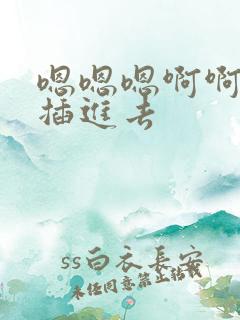 嗯嗯嗯啊啊
插进去
ss白衣长安
未经同意禁止转载